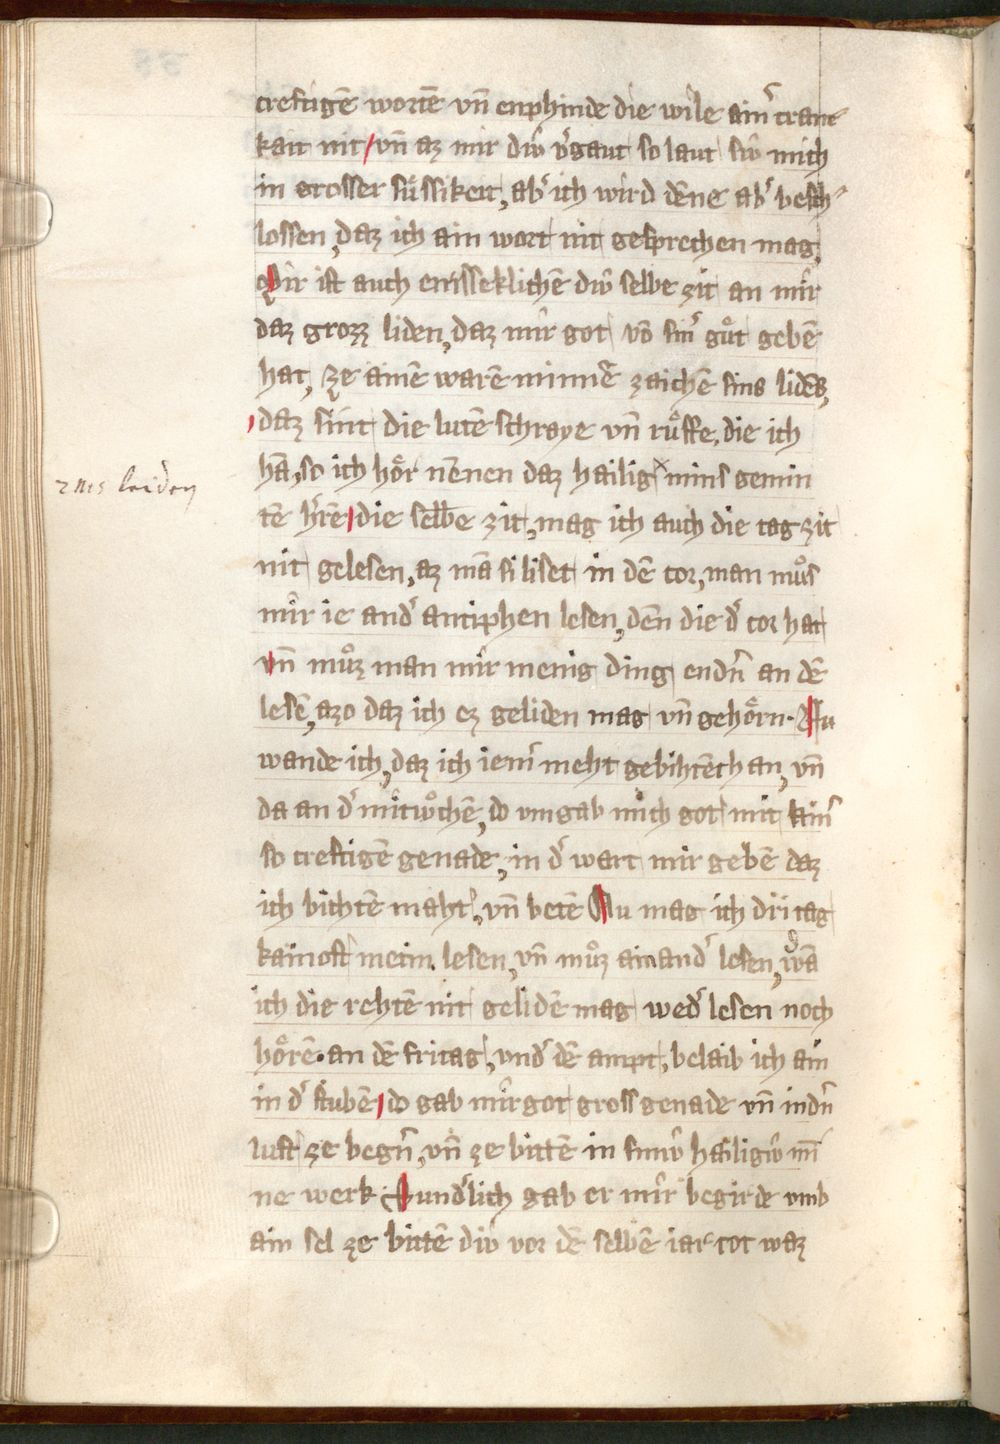 creftigē wortē vn̄ enphinde die wile ain᷑ cran-
kait nit / vn̄ az mir diu᷑ v᷑gaut so laut siu᷑ mich
in grosser süssikeit, ab᷑ ich wird dēne ab᷑ besch-
lossen, daz ich ain wort nit gesprechen mag,
Mir ist auch emsseklichē diu᷑ selbe zit an mir
daz grozz liden, daz mir got vō sin᷑ guͦt gebē
hat, ze ainē warē minne᷑ zaichē sins lidēs,
daz sint die lutē schraye vn̄ ruͤffe, die ich
hā, so ich hoͤr nēnen daz hailig x mins gemin
zms leiden
tē h᷑rē / die selbe zit, mag ich auch die tagzit
nit gelesen, az mā si liset in dē cor, man muͦs
mir ie and᷑ antiphen lesen, dēn die d᷑ cor hat
vn̄ muͦz man mir menig ding end᷑n an dē
lesē, azo daz ich ez geliden mag vn̄ gehoͤrn. Nu
wande ich, daz ich iem᷑ meht gebihtē ch an, vn̄
da an d᷑ mitwͦchē, do vmgab mich got mit ain᷑
so creftigē genade, in d᷑ wart mir gebē daz
ich bichtē maht᷑, vn̄ betē Nu mag ich dri tag
kain oft metin lesen, vn̄ muͦz ain and᷑ lesen, wā
ich die rehtē nit gelidē mag wed᷑ lesen noch
hoͤrē. an dē fritag, vnd᷑ dē ampt, belaib ich ain
in d᷑ stubē / do gab mir got gross genade vn̄ ind᷑n
luft ze beg᷑n, vn̄ ze bittē in sinu᷑ hailigu᷑ mī
ne werk Sund᷑lich gab er mir begirde vmb
ain sel ze bittē diu᷑ vor dē selbē iar tot waz